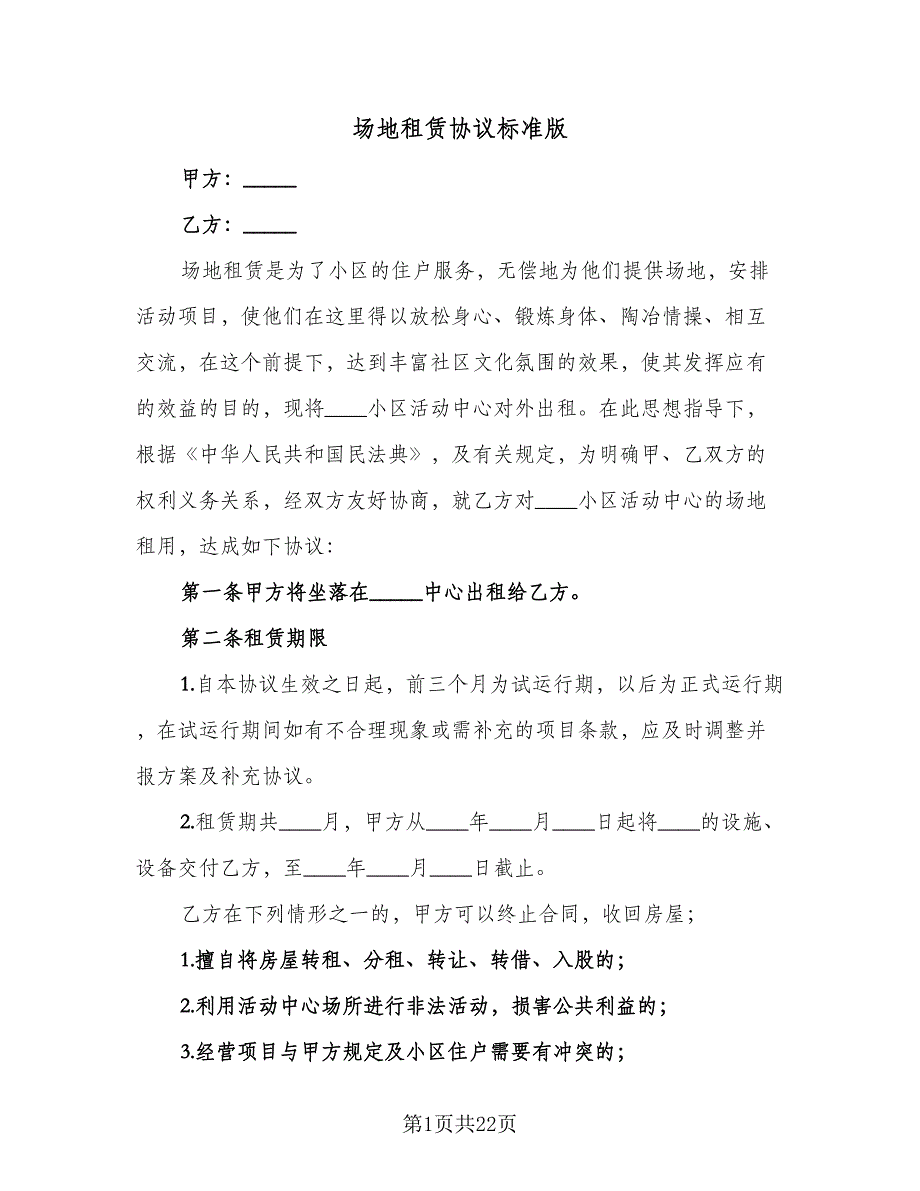 场地租赁协议标准版
甲方：_____
乙方：_____
场地租赁是为了小区的住户服务，无偿地为他们提供场地，安排
活动项目，使他们在这里得以放松身心、锻炼身体、陶冶情操、相互
交流，在这个前提下，达到丰富社区文化氛围的效果，使其发挥应有
的效益的目的，现将____小区活动中心对外出租。在此思想指导下，
根据《中华人民共和国民法典》，及有关规定，为明确甲、乙双方的
权利义务关系，经双方友好协商，就乙方对____小区活动中心的场地
租用，达成如下协议：
第一条甲方将坐落在_____中心出租给乙方。
第二条租赁期限
1.自本协议生效之日起，前三个月为试运行期，以后为正式运行期
，在试运行期间如有不合理现象或需补充的项目条款，应及时调整并
报方案及补充协议。
2.租赁期共____月，甲方从____年____月____日起将____的设施、
设备交付乙方，至____年____月____日截止。
乙方在下列情形之一的，甲方可以终止合同，收回房屋；
1.擅自将房屋转租、分租、转让、转借、入股的；
2.利用活动中心场所进行非法活动，损害公共利益的；
3.经营项目与甲方规定及小区住户需要有冲突的；
第1页共22页